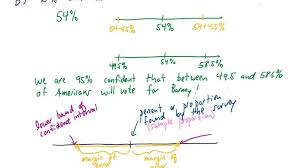 54%
54-4.5% 54% 54+4.5%
49.5% 54% 58.5%
we are 95% confident that between 49.5 and 58.5%
of Americans will vote for
percent or proportion
found by the survey
(sample proportion)
lower band of
confidence interval
margin of
error
margin of